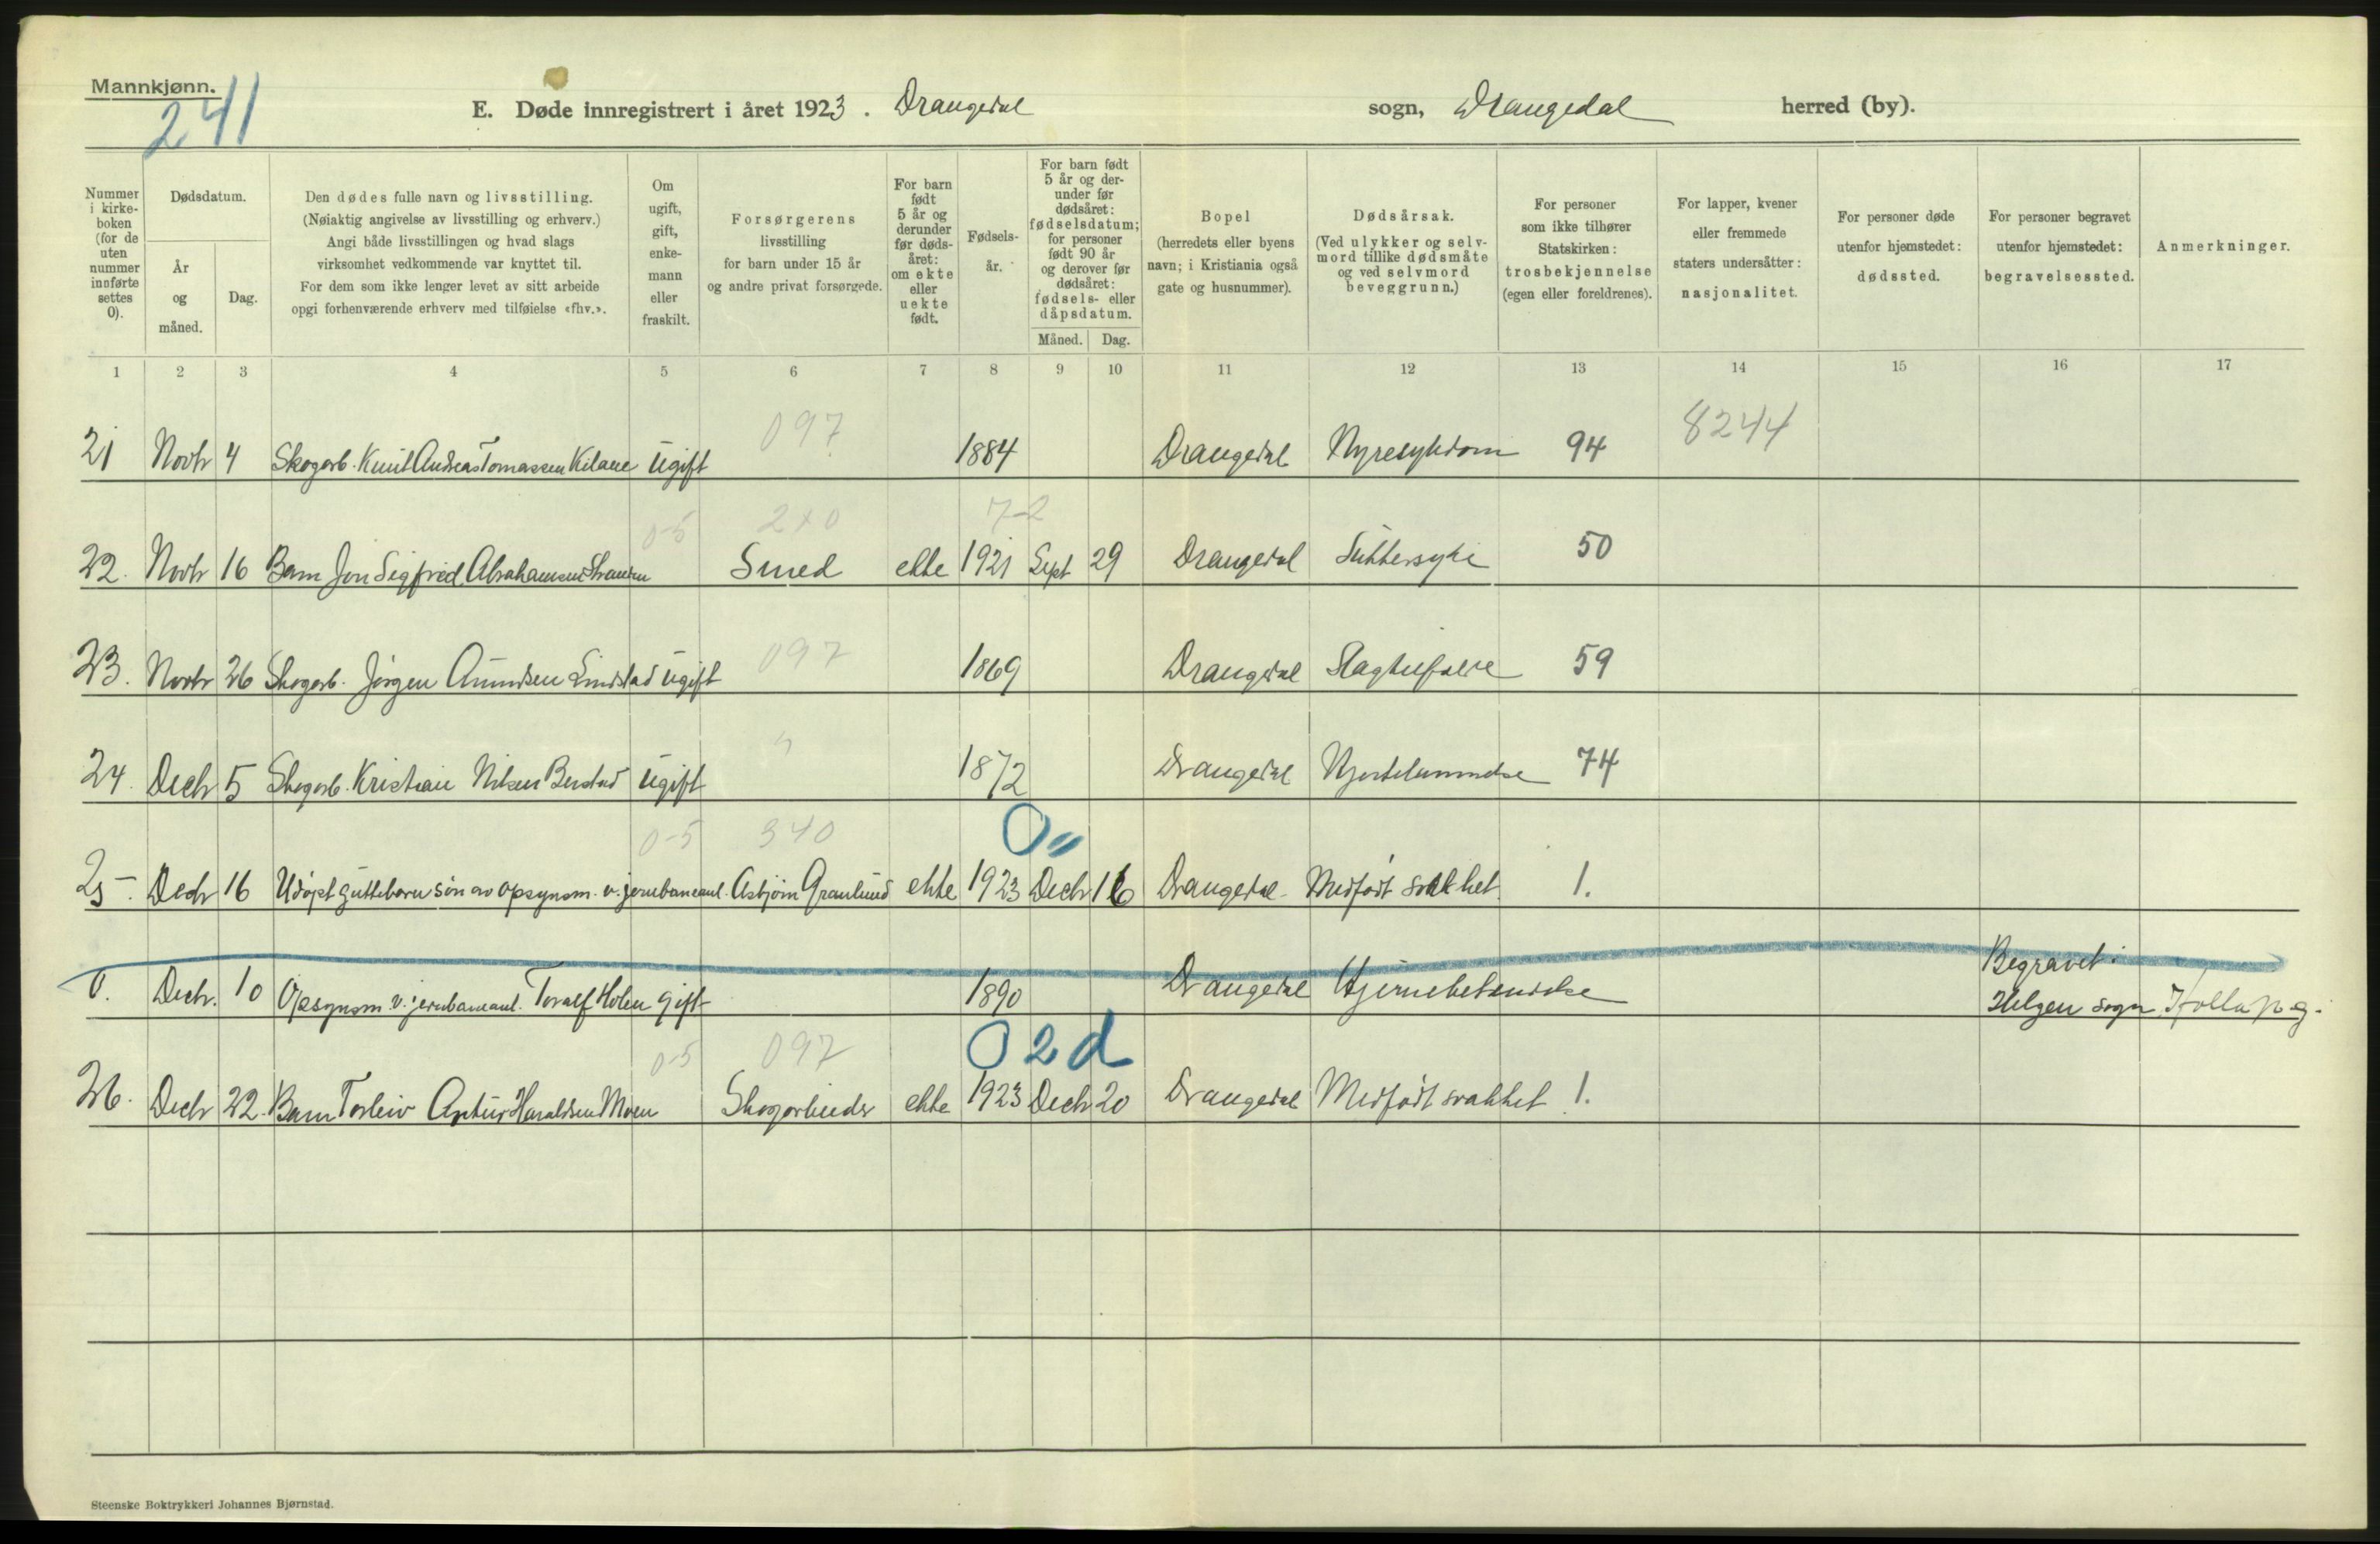 Mannkjønn.
241
E. Døde innregistrert i året 1923. Drangedal sogn, Drangedal herred (by).
Nummer i kirke-boken (for de uten nummer innførte settes 0).
Dødsdatum.
År og måned.
Dag.
Den dødes fulle navn og livsstilling.
(Nøiaktig angivelse av livsstilling og erhverv.)
Angi både livsstillingen og hvad slags
virksomhet vedkommende var knyttet til.
For dem som ikke lenger levet av sitt arbeide
opgi forhenværende erhverv med tilføielse «fhv.».
Om ugift, gift, enke-mann eller fraskilt.
Forsørgerens
livsstilling
for barn under 15 år
og andre privat forsørgede.
For barn født 5 år og derunder før døds-året: om ekte eller uekte født.
Fødsels-år.
For barn født 5 år og der-under før dødsåret: fødselsdatum; for personer født 90 år og derover før dødsåret: fødsels- eller dåpsdatum.
Måned. Dag.
Bopel
(herredets eller byens
navn; i Kristiania også
gate og husnummer).
Dødsårsak.
(Ved ulykker og selv-
mord tillike dødsmåte
og ved selvmord
beveggrunn.)
For personer
som ikke tilhører
Statskirken:
trosbekjennelse
(egen eller foreldrenes).
For lapper, kvener
eller fremmede
staters undersåtter:
nasjonalitet.
For personer døde
utenfor hjemstedet:
dødssted.
For personer begravet
utenfor hjemstedet:
begravelsessted.
Anmerkninger.
1 2 3 4 5 6 7 8 9 10 11 12 13 14 15 16 17
097 8244
21 Novbr 4 Skogarb. Knut Andreas Tomassen Kilane Ugift 1884 Drangedal Nyresykdom 94
0-5 2x0 7-2
22. Novbr 16 Barn Jon Sigfred Abrahamsen Smed ekte 1921 Sept 29 Drangedal Sukkersyke 50
097
23. Novbr 26 Skogarb. Jørgen Amundsen Lindstad ugift 1869 Drangedal Slagtilfælde 59
"
24. Decbr 5 Skogarb. Kristian Nilsen Ugift 1872 Drangedal Hjertelammelse 74
0-5 340 0"
25. Decbr 16 Udøpt guttebarn søn av opsynsm. v. jernbaneanl. Asbjørn Granlund ekte 1923 Decbr 16 Drangedal Medfødt svakhet. 1.
0. Decbr. 10 Opsynsm. v. jernbaneanl. Toralf Holen gift 1890 Drangedal Hjernebetendelse Begravet i
Helgen sogn, Holla pg.
0-5 097 0 2d
26. Decbr 22. Barn Torleiv Artur Haraldsen Moen Skogarbeider ekte 1923 Decbr 20 Drangedal Medfødt svakhet 1.
Steenske Boktrykkeri Johannes Bjørnstad.